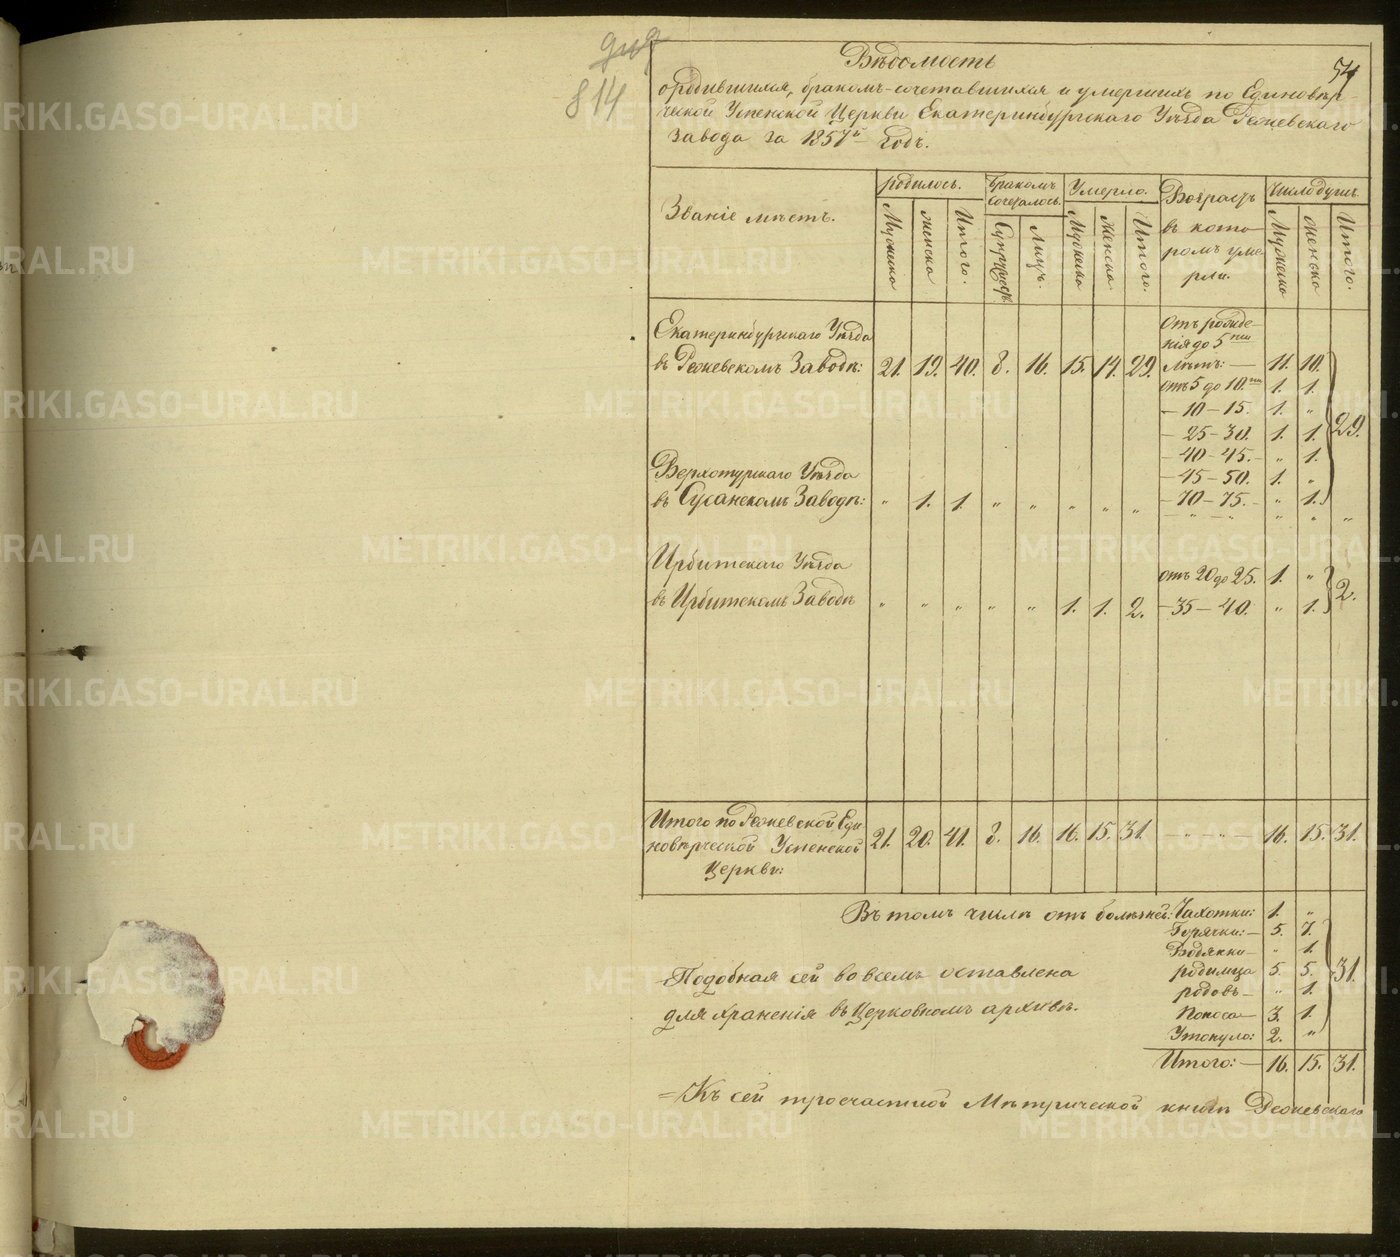 814
54
Вѣдомость
о родившихся, бракомъ-сочетавшихся и умершихъ по Единовѣр-
ческой Успенской Церкви Екатеринбургскаго Уѣзда Режевскаго
завода за 1857й годъ.
Званіе мѣстъ. родилось. Бракомъ сочеталось. Умерло. Возрастъ въ которомъ умерли. Число душъ.
Мужеска женска Итого. Супружествъ Лицъ. Мужеска Женска. Итого. Мужеска женска Итого.
Екатеринбургскаго Уѣзда отъ рожде-
нія до 5ти
въ Режевскомъ Заводѣ: 21. 19. 40. 8. 16. 15. 14. 29. лѣтъ: — 11. 10.
отъ 5 до 10.ти 1. 1.
— 10 — 15. 1. „ 29.
— 25 — 30. 1. 1.
— 40 — 45. — „ 1.
Верхотурскаго Уѣзда — 45 — 50. 1. „
въ Сусанскомъ Заводѣ: „ 1. 1. „ „ „ „ „ — 70 — 75. — „ 1.
— „ — „ — „ „ „
Ирбитскаго Уѣзда отъ 20 до 25. 1. „ 2.
въ Ирбитскомъ Заводѣ „ „ „ „ „ 1. 1. 2. — 35 — 40. „ 1.
Итого по Режевской Еди-
новѣрческой Успенской 21. 20. 41. 8. 16. 16. 15. 31. — „ — „ — 16. 15. 31.
Церкви:
Въ томъ числѣ отъ болѣзней: Чахотки: 1. „
Горячки: — 5. 7.
Водянки — „ 1.
Подобная сей во всемъ оставлена родимца 5. 5. 31.
родовъ — „ 1.
для храненія въ Церковномъ архивѣ. Поноса — 3. 1.
Утонуло: 2. „
Итого: — 16. 15. 31.
= Къ сей троечастной Метрической книгѣ Режевскаго
METRIKI.GASO-URAL.RU